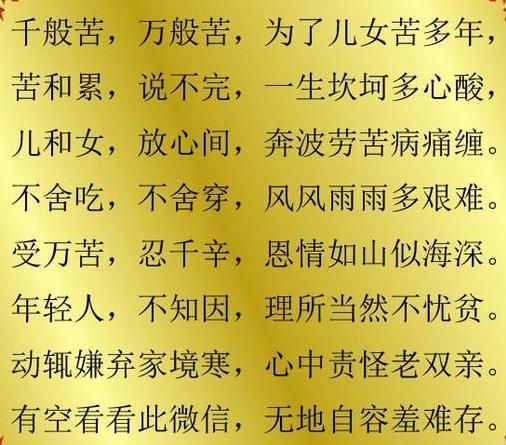 千般苦，万般苦，为了儿女苦多年，
苦和累，说不完，一生坎坷多心酸，
儿和女，放心间，奔波劳苦病痛缠。
不舍吃，不舍穿，风风雨雨多艰难。
受万苦，忍千辛，恩情如山似海深。
年轻人，不知因，理所当然不忧贫。
动辄嫌弃家境寒，心中责怪老双亲。
有空看看此微信，无地自容羞难存。